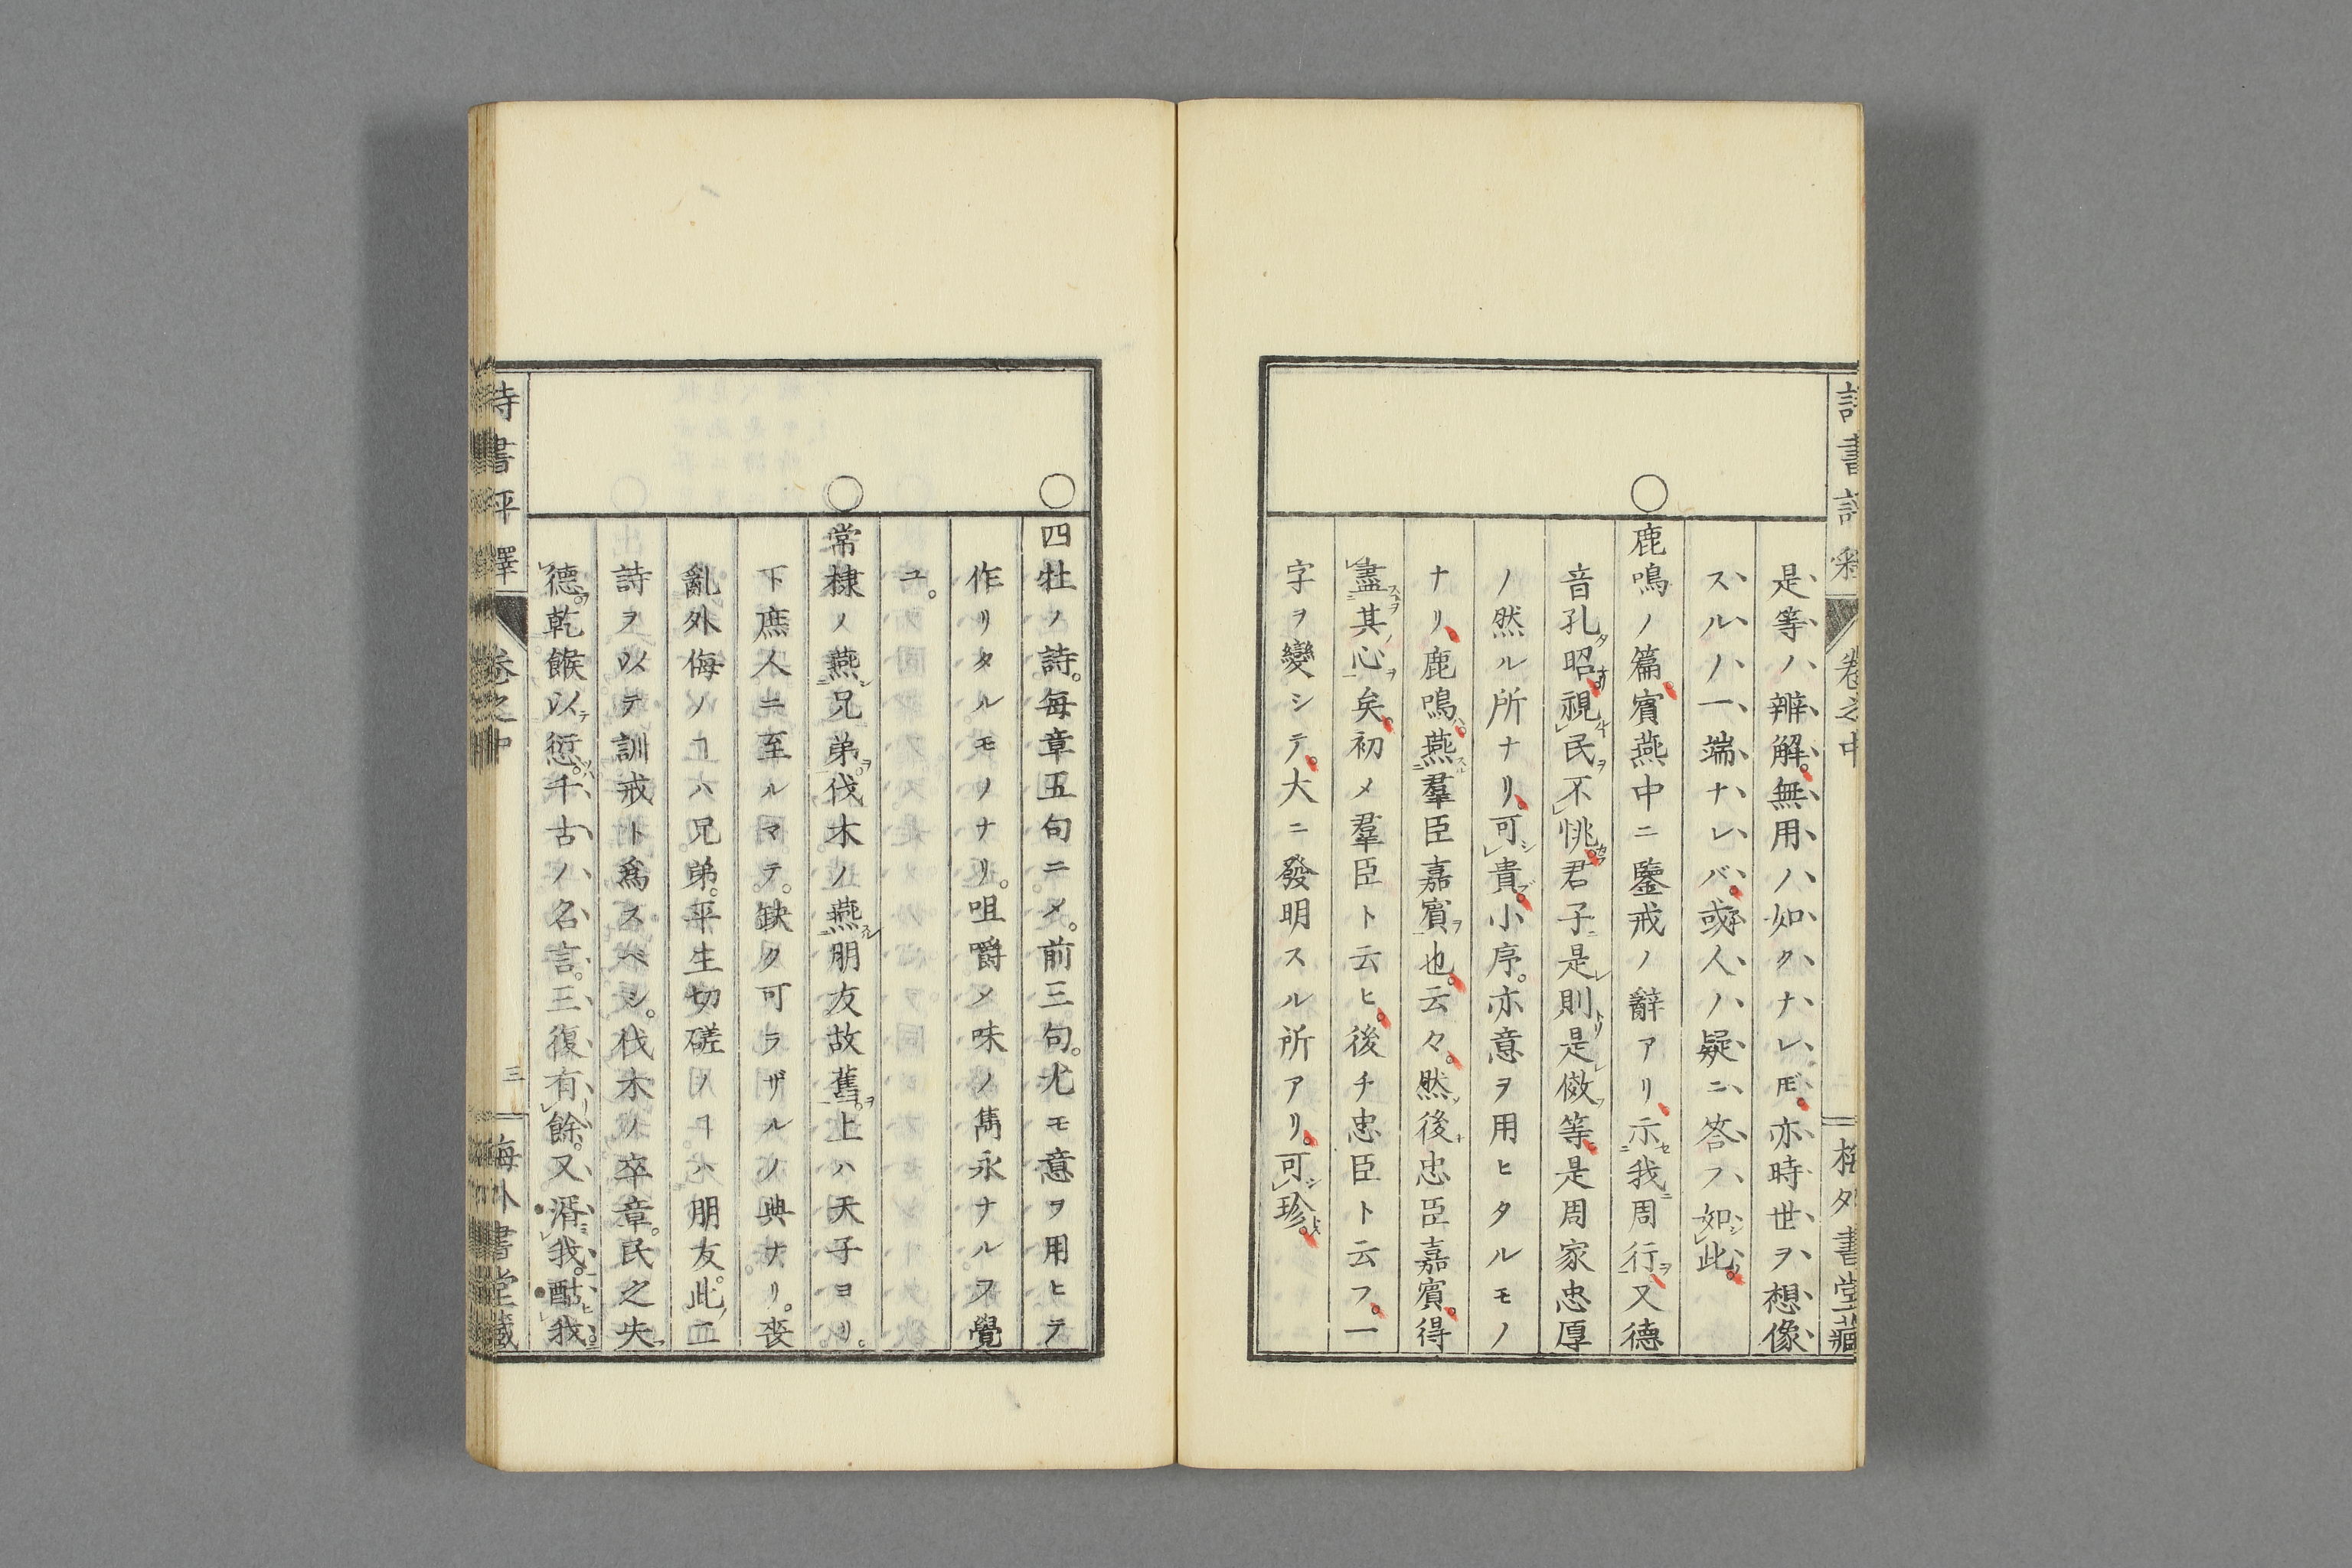 是等ノ辨解。無用ノ如クナレ𪜈。亦時世ヲ想像
スルノ一端ナレバ。或人ノ疑ニ答フ如此。
鹿鳴ノ篇。賓燕中ニ鑒戒ノ辭アリ。示我周行。又德
音孔昭。視民不恌。君子是則是傚等。是周家忠厚
ノ然ル所ナリ。可貴。小序。亦意ヲ用ヒタルモノ
ナリ。鹿鳴。燕羣臣嘉賓也。云々。然後忠臣嘉賓。得
盡其心矣。初メ羣臣ト云ヒ。後チ忠臣ト云フ。一
字ヲ變シテ。大ニ發明スル所アリ。可珍。
四牡ノ詩。每章五句ニメ。前三句。尤モ意ヲ用ヒテ
作リタルモノナリ。咀嚼メ味ノ雋永ナルヲ覺
ユ。
常棣ノ燕兄弟。伐木ノ燕朋友故舊。上ハ天子ヨリ。
下庶人ニ至ルマテ。缺ク可ラザルノ典ナリ。喪
亂外侮ノヿハ兄弟。平生切磋ノヿハ朋友。此二
詩ヲ以テ訓戒ト爲スベシ。伐木ノ卒章。民之失
德。乾餱以愆。千古ノ名言。三復有餘。又湑我。酤我。
詩書評釋
卷之中
三
梅外書堂藏